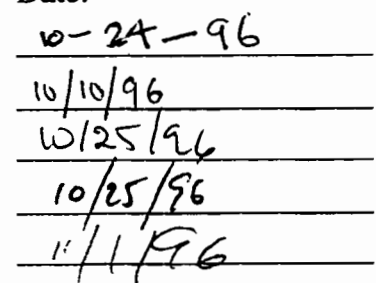 10-24-96
10/10/96
10/25/96
10/25/96
11/1/96